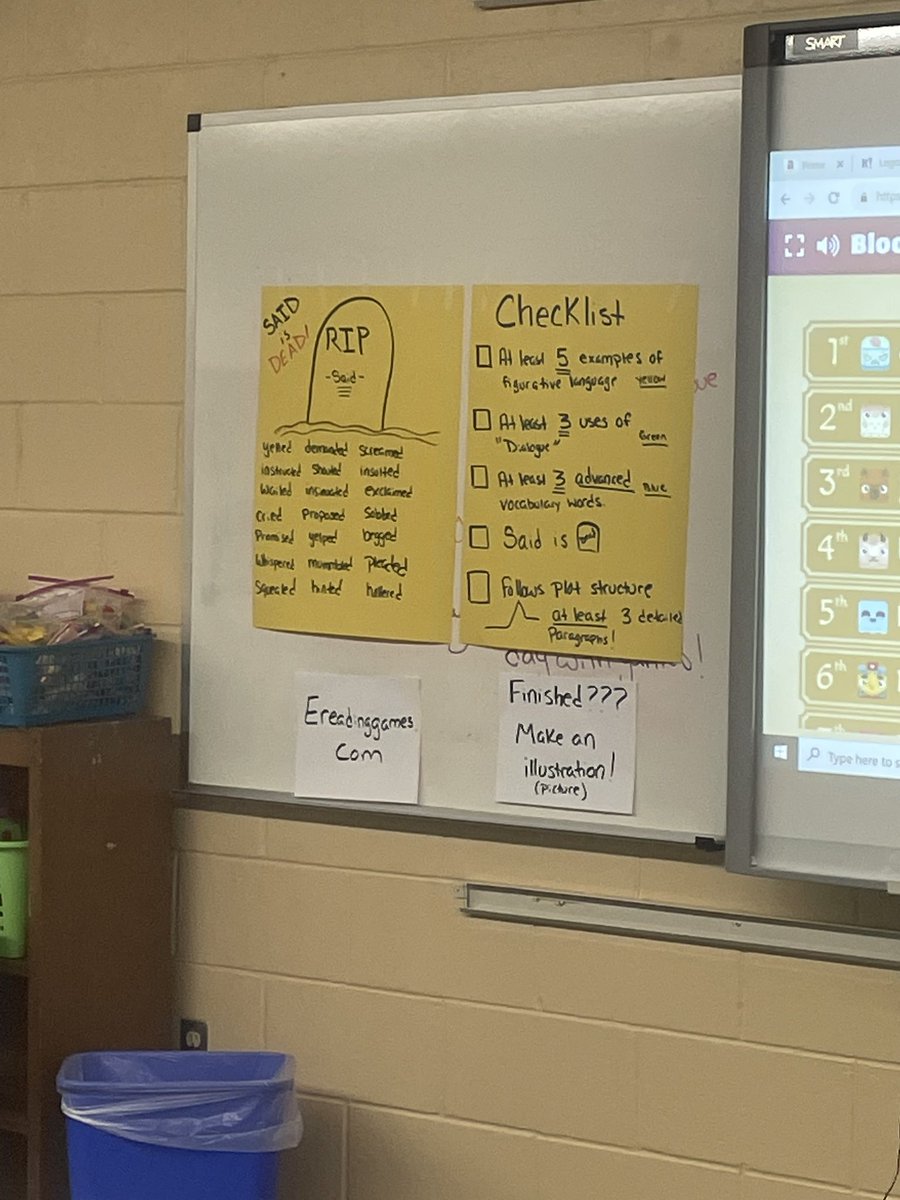 SMART
SAID
is
DEAD!
RIP
-Said-
yelled demanded screamed
instructed shouted insulted
wailed insinuated exclaimed
cried proposed sobbed
promised yelped begged
whispered mumbled pleaded
squealed hinted hollered
Checklist
At least 5 examples of
figurative language yellow
At least 3 uses of
"Dialogue" Green
At least 3 advanced
vocabulary words. Blue
Said is
Follows plot structure
at least 3 detailed
Paragraphs!
day with
Ereadinggames
Com
Finished???
Make an
illustration!
(Picture)
Home
https
Bloo
1st
2nd
3rd
4th
5th
6th
Type here to s